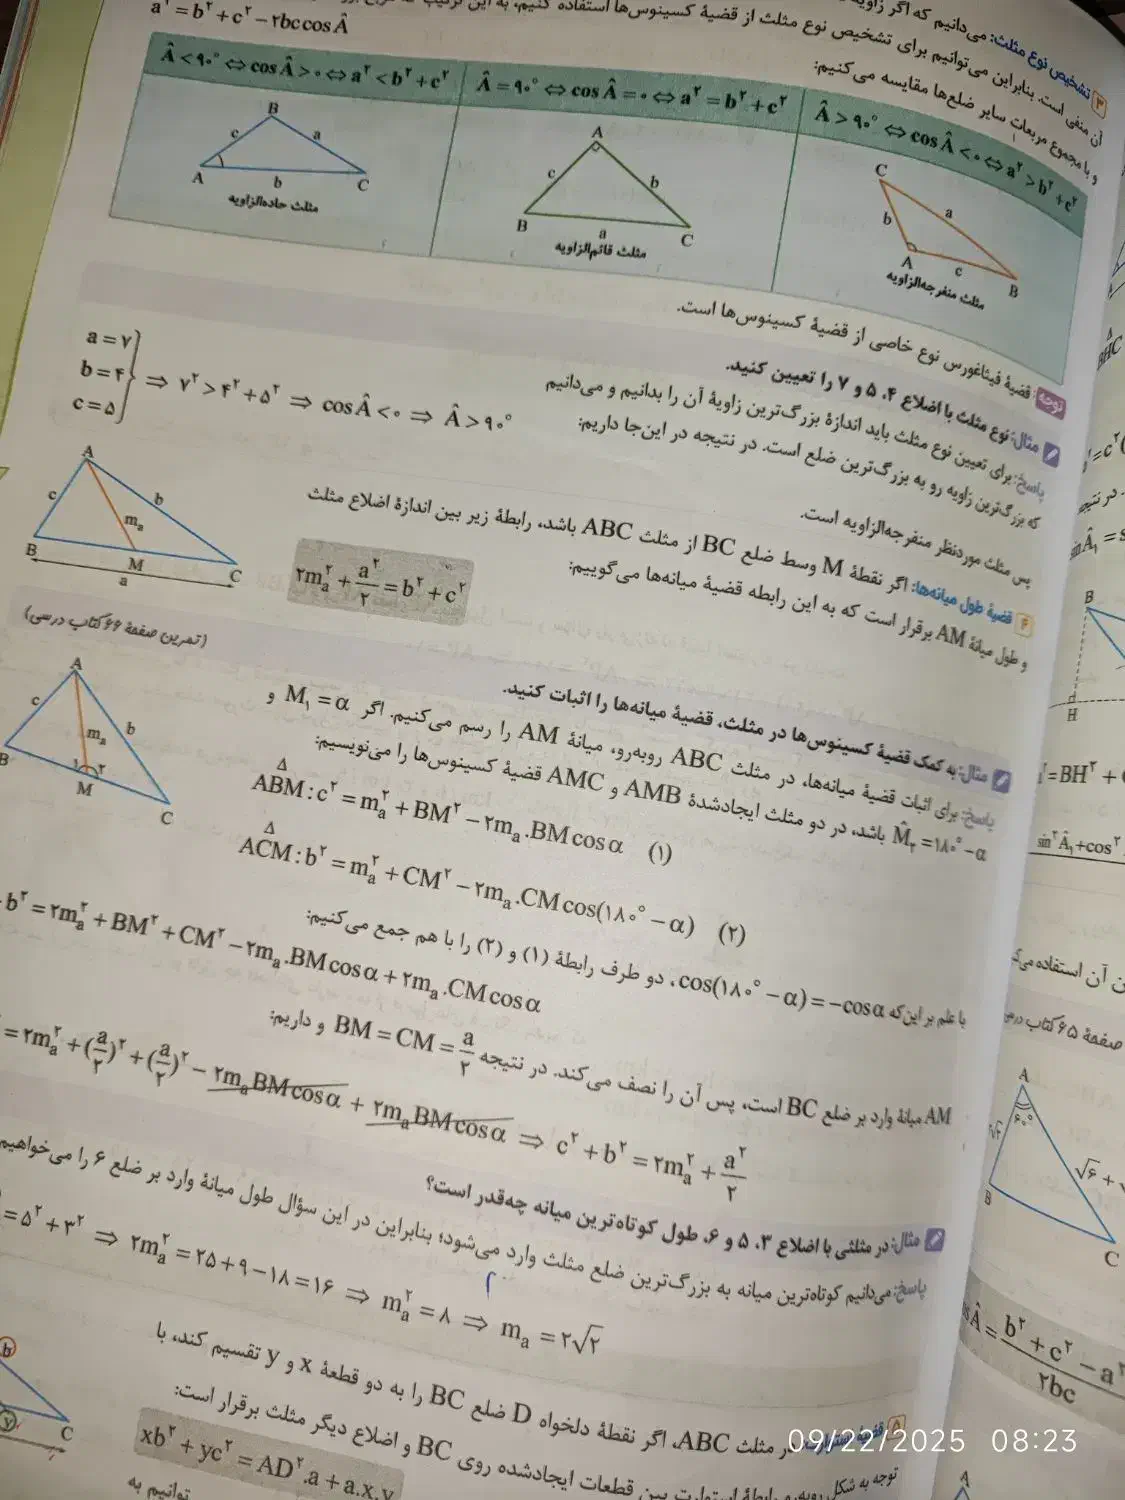 ۳ تشخیص نوع مثلث: می‌دانیم که اگر زاویه
آن منفی است. بنابراین می‌توانیم برای تشخیص نوع مثلث از قضیهٔ کسینوس‌ها استفاده کنیم، به این ترتیب که
و با مجموع مربعات سایر ضلع‌ها مقایسه می‌کنیم:
a² = b² + c² − ۲bc cos Â
Â > ۹۰° ⇔ cos Â < ۰ ⇔ a² > b² + c²
Â = ۹۰° ⇔ cos Â = ۰ ⇔ a² = b² + c²
Â < ۹۰° ⇔ cos Â > ۰ ⇔ a² < b² + c²
C a b A c B
مثلث منفرجه‌الزاویه
A c b B a C
مثلث قائم‌الزاویه
B c a A b C
مثلث حاده‌الزاویه
توجه: قضیهٔ فیثاغورس نوع خاصی از قضیهٔ کسینوس‌ها است.
مثال: نوع مثلث با اضلاع ۴، ۵ و ۷ را تعیین کنید.
پاسخ: برای تعیین نوع مثلث باید اندازهٔ بزرگ‌ترین زاویهٔ آن را بدانیم و می‌دانیم
که بزرگ‌ترین زاویه رو به بزرگ‌ترین ضلع است. در نتیجه در این‌جا داریم:
a = ۷
b = ۴
c = ۵
⇒ ۷² > ۴² + ۵² ⇒ cos Â < ۰ ⇒ Â > ۹۰°
پس مثلث موردنظر منفرجه‌الزاویه است.
۴ قضیهٔ طول میانه‌ها: اگر نقطهٔ M وسط ضلع BC از مثلث ABC باشد، رابطهٔ زیر بین اندازهٔ اضلاع مثلث
و طول میانهٔ AM برقرار است که به این رابطه قضیهٔ میانه‌ها می‌گوییم:
۲mₐ² + a²/۲ = b² + c²
A c b mₐ B M C a
(تمرین صفحهٔ ۶۶ کتاب درسی)
مثال: به کمک قضیهٔ کسینوس‌ها در مثلث، قضیهٔ میانه‌ها را اثبات کنید.
پاسخ: برای اثبات قضیهٔ میانه‌ها، در مثلث ABC روبه‌رو، میانهٔ AM را رسم می‌کنیم. اگر M₁ = α و
M̂₂ = ۱۸۰° − α باشد، در دو مثلث ایجادشدهٔ AMB و AMC قضیهٔ کسینوس‌ها را می‌نویسیم:
A c b mₐ ۱ ۲ B M C
ABM: c² = mₐ² + BM² − ۲mₐ.BM cos α (۱)
ACM: b² = mₐ² + CM² − ۲mₐ.CM cos(۱۸۰° − α) (۲)
با علم بر این‌که cos(۱۸۰° − α) = −cos α، دو طرف رابطهٔ (۱) و (۲) را با هم جمع می‌کنیم:
b² = ۲mₐ² + BM² + CM² − ۲mₐ.BM cos α + ۲mₐ.CM cos α
AM میانهٔ وارد بر ضلع BC است، پس آن را نصف می‌کند. در نتیجه BM = CM = a/۲ و داریم:
= ۲mₐ² + (a/۲)² + (a/۲)² − ۲mₐBM cos α + ۲mₐBM cos α ⇒ c² + b² = ۲mₐ² + a²/۲
مثال: در مثلثی با اضلاع ۳، ۵ و ۶، طول کوتاه‌ترین میانه چه‌قدر است؟
پاسخ: می‌دانیم کوتاه‌ترین میانه به بزرگ‌ترین ضلع مثلث وارد می‌شود؛ بنابراین در این سؤال طول میانهٔ وارد بر ضلع ۶ را می‌خواهیم
= ۵² + ۳² ⇒ ۲mₐ² = ۲۵ + ۹ − ۱۸ = ۱۶ ⇒ mₐ² = ۸ ⇒ mₐ = ۲√۲
۵ قضیهٔ استوارت: در مثلث ABC، اگر نقطهٔ دلخواه D ضلع BC را به دو قطعهٔ x و y تقسیم کند، با
توجه به شکل روبه‌رو رابطهٔ استوارت بین قطعات ایجادشده روی BC و اضلاع دیگر مثلث برقرار است:
xb² + yc² = AD².a + a.x.y
b y C
توانیم به
BHC
در نتیجه
B
H
= BH² +
sin²Â₁ + cos²
آن استفاده می‌کنیم
صفحهٔ ۶۵ کتاب درسی
A ۶۰° B C
b² + c² − a²
۲bc
A
09/22/2025 08:23